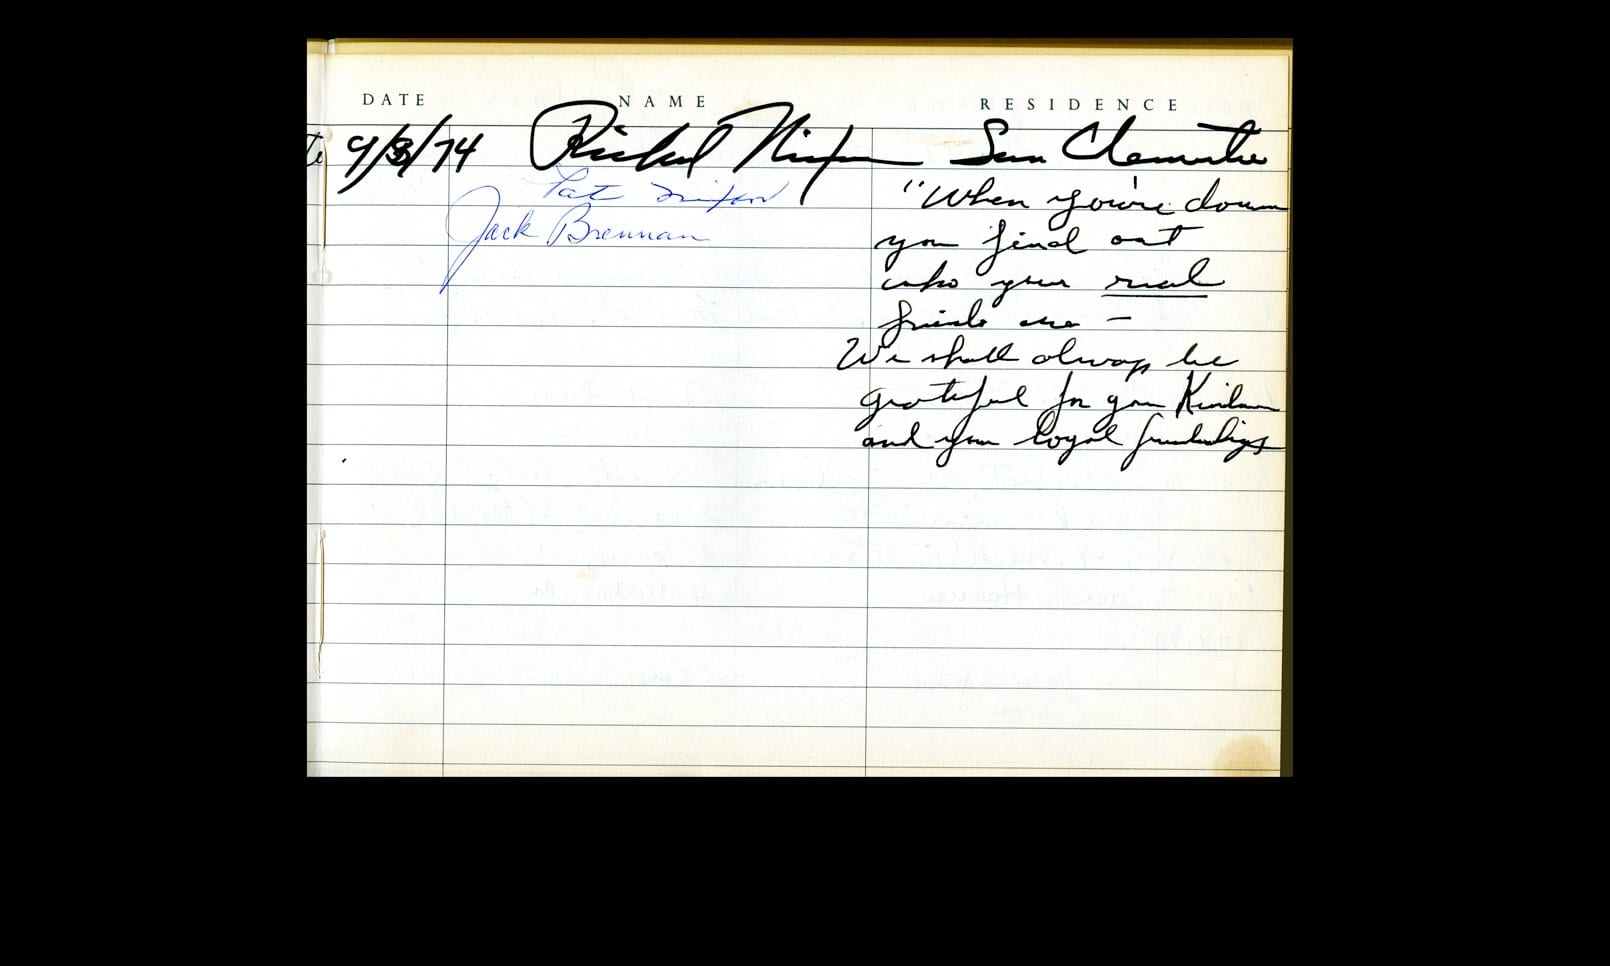 DATE NAME RESIDENCE
9/8/74 Richard Nixon San Clemente
Pat Nixon
Jack Brennan
"When you're down
you find out
who your real
friends are –
We shall always be
grateful for your Kindness
and your loyal friendship